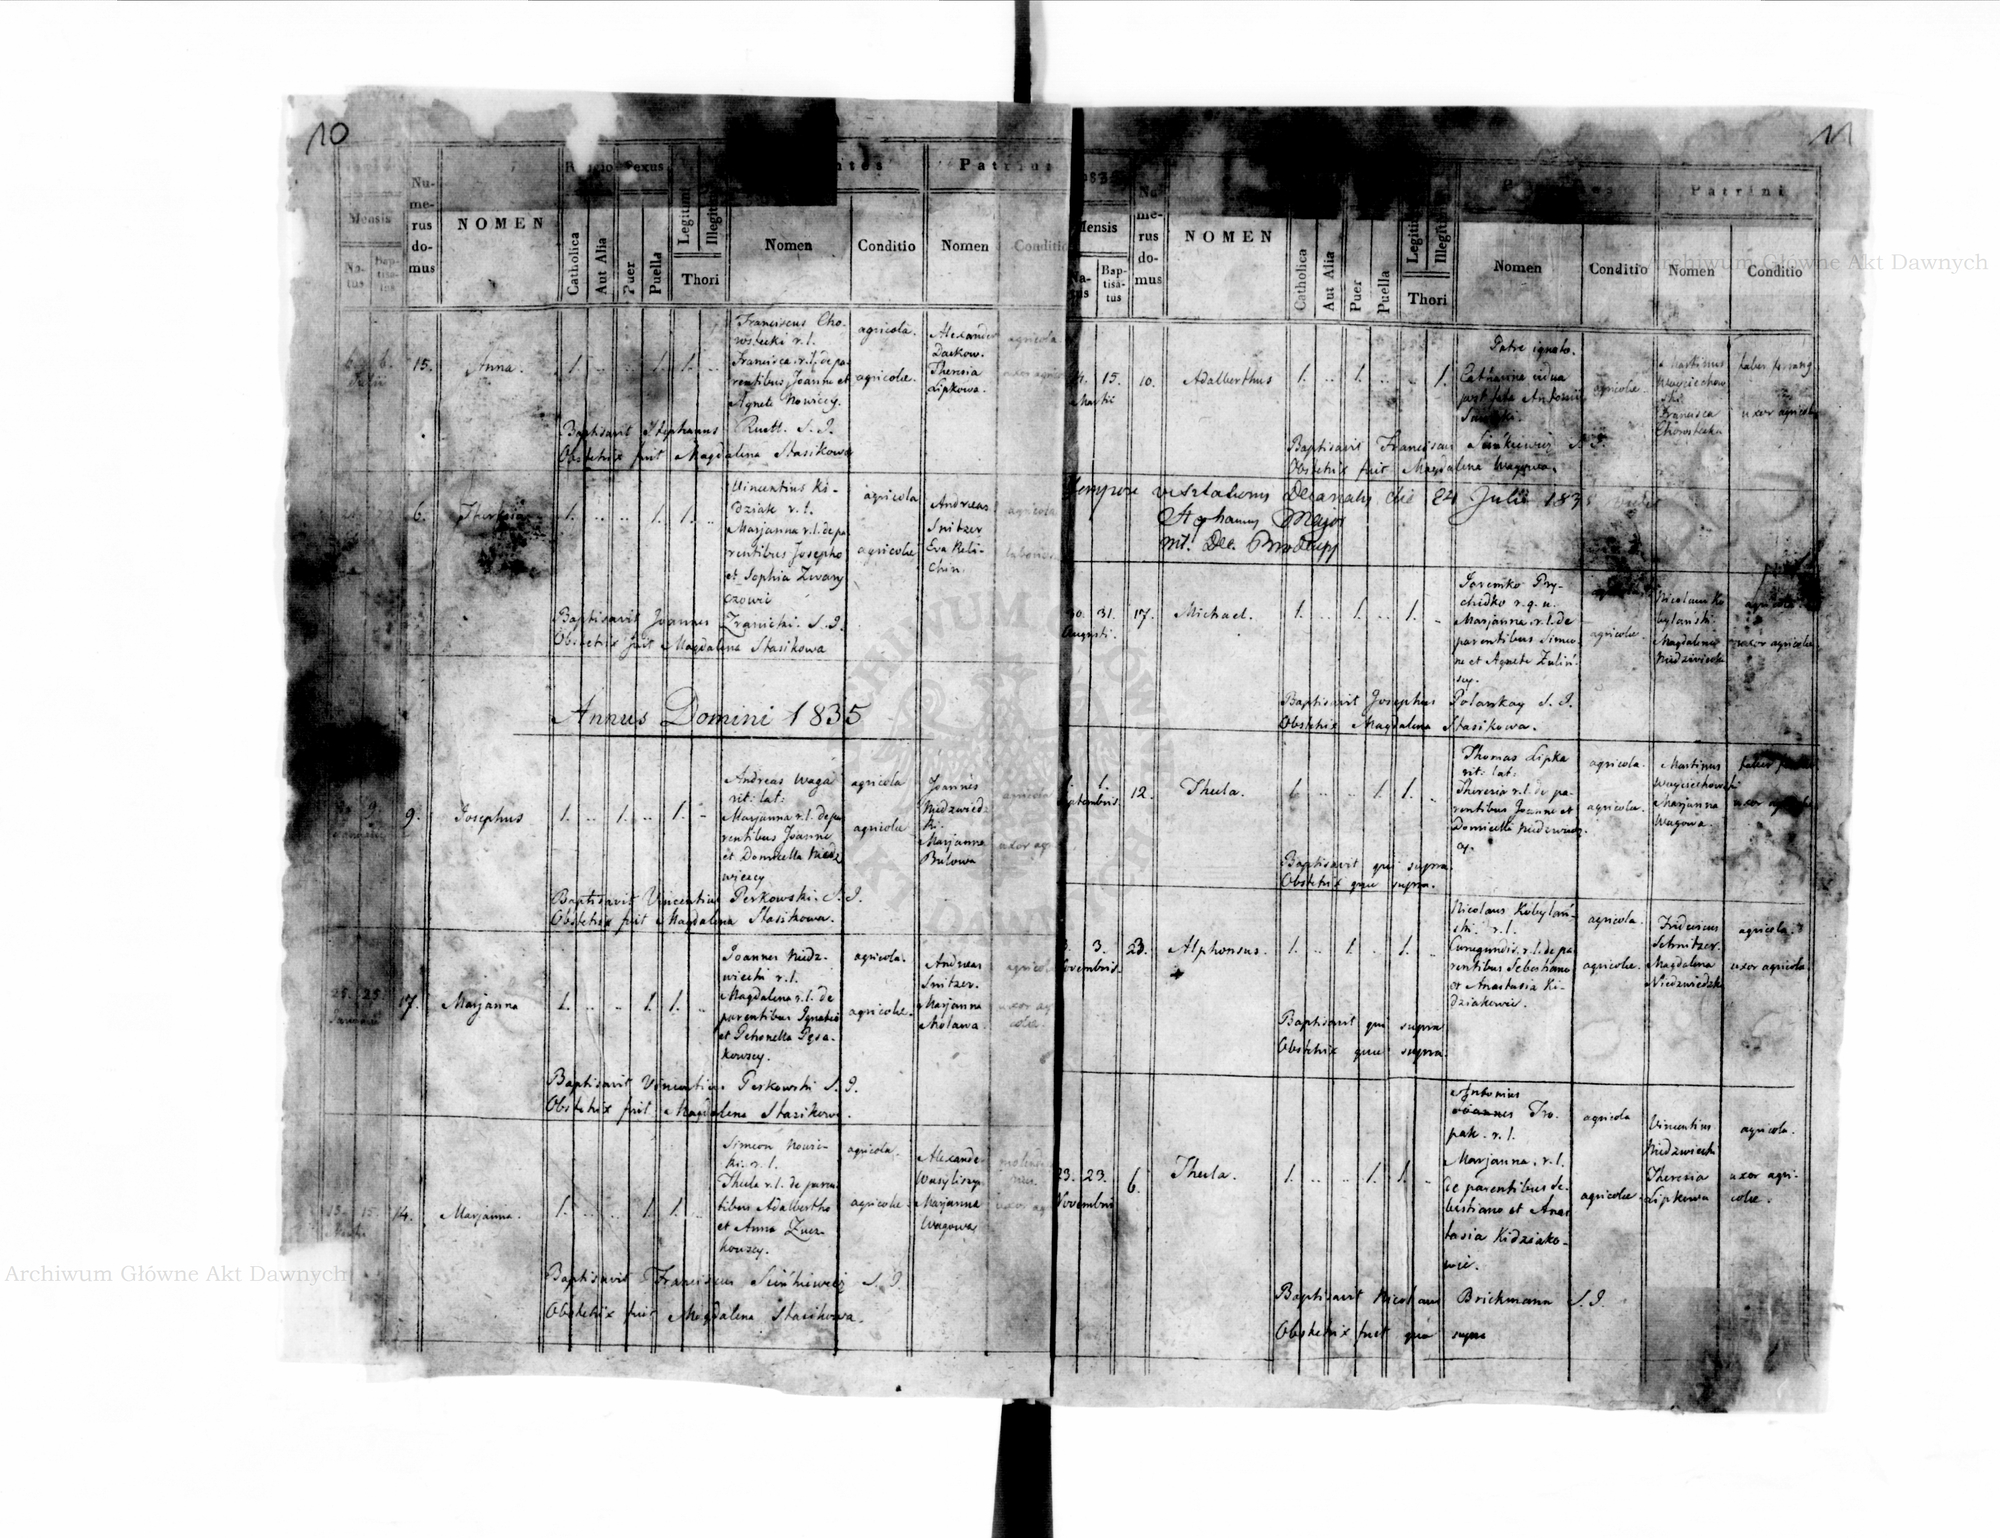 10
Mensis
Nu-
me-
rus
do-
mus
NOMEN
Religio
Sexus
Patrini
Na-
tus
Bap-
tisa-
tus
Catholica
Aut Alia
Puer
Puella
Legitimi
Illegitimi
Thori
Nomen
Conditio
Nomen
Conditio
6. 6.
Julii
15.
Anna.
1. .. .. 1. 1. ..
Franciscus Cho-
wstecki r. l.
Francisca. r. l. de pa-
rentibus Joanne et
Agnete Nowiccy.
agricola.
agricolae.
Alexander
Daikow.
Theresia
Lipkowa.
agricola
uxor agricolae
Baptisavit Stephanus Ruett. S. J.
Obstetrix fuit Magdalena Stasikowa
6.
Theresia
1. .. .. 1. 1. ..
Vincentius Ki-
dziak r. l.
Marjanna r. l. de pa
rentibus Josepho
et Sophia Zwary
czowie
agricola
agricolae
Andreas
Snitzer
Eva Reli-
chin.
agricola
Baptisavit Joannes Zranicki. S. J.
Obstetrix fuit Magdalena Stasikowa
Annus Domini 1835
9.
Januarii
9.
Josephus
1. .. 1. .. 1. ..
Andreas Waga
rit: lat:
Marjanna r. l. de pa
rentibus Joanne
et Domicella Niedz
wieccy
agricola
agricolae
Joannes
Niedzwiedz-
ki.
Marjanna
Bulowa
agricola
uxor agr.
Baptisavit Vincentius Perkowski. S. J.
Obstetrix fuit Magdalena Stasikowa.
25. 25.
Januarii
17.
Marjanna
1. .. .. 1. 1. ..
Joannes Niedz-
wiecki r. l.
Magdalena r. l. de
parentibus Ignatio
et Petronella Pęsa-
kowscy.
agricola.
agricolae.
Andreas
Snitzer.
Marjanna
Molawa
agricola
uxor agri
colae.
Baptisavit Vincentius Perkowski S. J.
Obstetrix fuit Magdalena Stasikowa.
15. 15.
14.
Marjanna.
1. .. .. 1. 1. ..
Simeon Nowic-
ki. r. l.
Thecla r. l. de paren
tibus Adalbertho
et Anna Zucz-
kowscy.
agricola.
agricolae.
Alexander
Wasyliszyn
Marjanna
Wagowa
uxor ag
Baptisavit Franciscus Sieńkiewicz S. J.
Obstetrix fuit Magdalena Stasikowa.
11
Mensis
Nu-
me-
rus
do-
mus
NOMEN
Patrini
Na-
tus
Bap-
tisa-
tus
Catholica
Aut Alia
Puer
Puella
Legitimi
Illegitimi
Thori
Nomen
Conditio
Nomen
Conditio
14. 15.
Martii
10.
Adalberthus
1. .. 1. .. .. 1.
Patre ignoto.
Catharina vidua
post fata Antonii
agricolae.
Martinus
Woyciechow
ski.
Francisca
Chowstecka
faber
uxor agricolae
Baptisavit Franciscus Sieńkiewicz S. J.
Obstetrix fuit Magdalena Wagowa.
Tempore visitationis decanalis die 24 Julii 1835
Stephanus Mayor
30. 31.
Augusti.
17.
Michael.
1. .. 1. .. 1. ..
Joremko Pry-
chidko r. g. u.
Marjanna. r. l. de
parentibus Simeo-
ne et Agnete Zuliń-
scy.
agricola
agricolae.
Nicolaus Ko
bylański.
Magdalena
Niedzwiecka
agricola.
uxor agricolae.
Baptisavit Josephus Polanskay S. J.
Obstetrix Magdalena Stasikowa.
1. 1.
Septembris
12.
Thecla.
1. .. .. 1. 1. ..
Thomas Lipka
rit: lat:
Theresia r. l. de pa-
rentibus Joanne et
Domicella Niedzwiec-
cy.
agricola.
agricolae.
Martinus
Woyciechowski
Marjanna
Wagowa.
faber
uxor agricolae
Baptisavit qui supra.
Obstetrix quae supra.
3. 3.
Novembris.
23.
Alphonsus.
1. .. 1. .. 1. ..
Nicolaus Kobylań-
ski. r. l.
Cunegundis. r. l. de pa-
rentibus Sebastiano
et Anastasia Ki-
dziakowie.
agricola.
agricolae.
Fridericus
Schnitzer.
Magdalena
Niedzwiedzka
agricola.
uxor agricolae.
Baptisavit qui supra
Obstetrix quae supra.
23. 23.
Novembris
6.
Thecla.
1. .. .. 1. 1. ..
Antonius
Joannes Tro-
pak. r. l.
Marjanna. r. l.
de parentibus Se-
bastiano et Anas
tasia Kidziako-
wie.
agricola
agricolae.
Vincentius
Niedzwiecki
Theresia
Lipkowa
agricola.
uxor agri-
colae.
Baptisavit Nicolaus Brickmann S. J.
Obstetrix fuit qua supra
Archiwum Główne Akt Dawnych
Archiwum Główne Akt Dawnych
ARCHIWUM GŁÓWNE AKT DAWNYCH